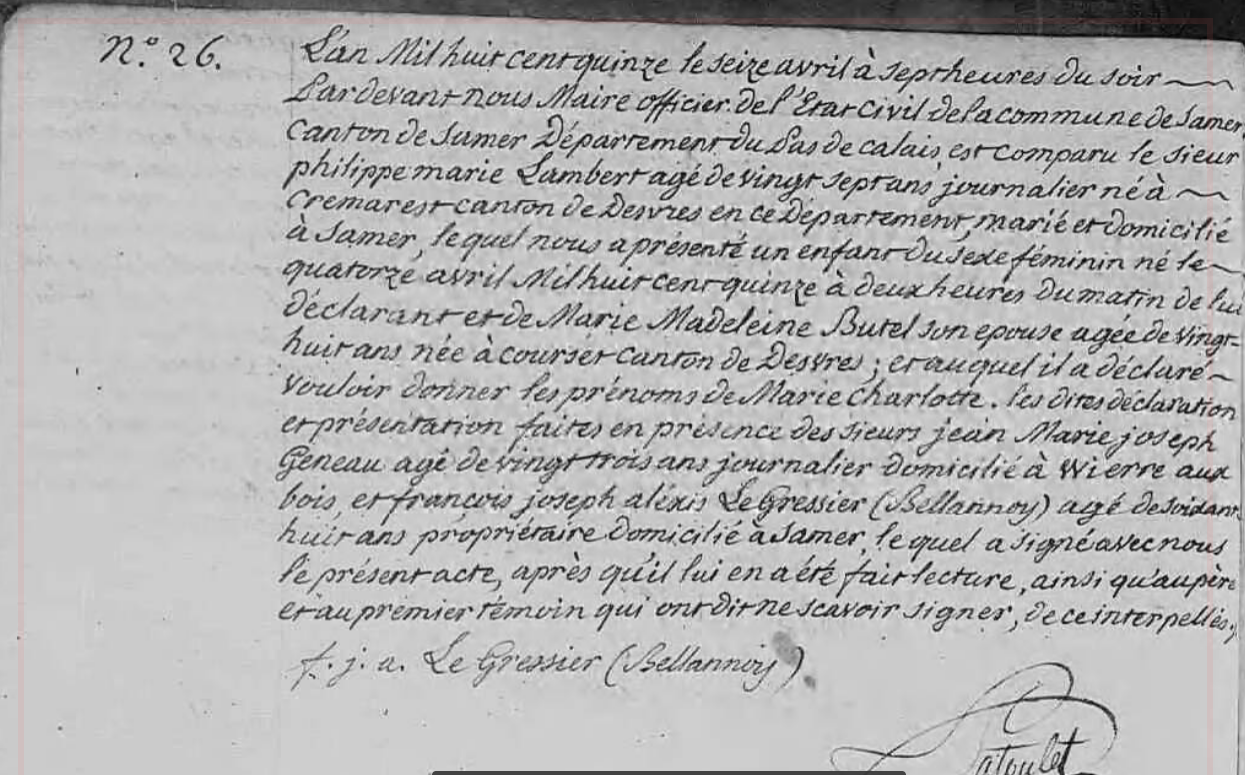 N.° 26.
L'an Mil huit cent quinze le seize avril à sept heures du soir
Pardevant nous Maire officier de l'Etat Civil de la commune de Samer,
Canton de Samer Département du Pas de calais, est comparu le sieur
philippe marie Lambert agé de vingt sept ans journalier né à
Cremarest canton de Desvres en ce Département, marié et domicilié
à Samer, lequel nous a présenté un enfant du sexe féminin né le
quatorze avril Mil huit cent quinze à deux heures du matin de lui
déclarant et de Marie Madeleine Butel son epouse agée de vingt
huit ans née à courset canton de Desvres ; et auquel il a déclaré
vouloir donner les prénoms de Marie Charlotte. les dites déclaration
et présentation faites en présence des sieurs jean Marie joseph
Geneau agé de vingt trois ans journalier domicilié à Wierre aux
bois, et françois joseph aléxis Le Gressier (Bellannoy) agé de soixante
huit ans propriétaire domicilié à Samer, lequel a signé avec nous
le présent acte, après qu'il lui en a été fait lecture, ainsi qu'au père
et au premier témoin qui ont dit ne scavoir signer, de ce interpellés.
f. j. a. Le Gressier (Bellannoy)
Patoulet